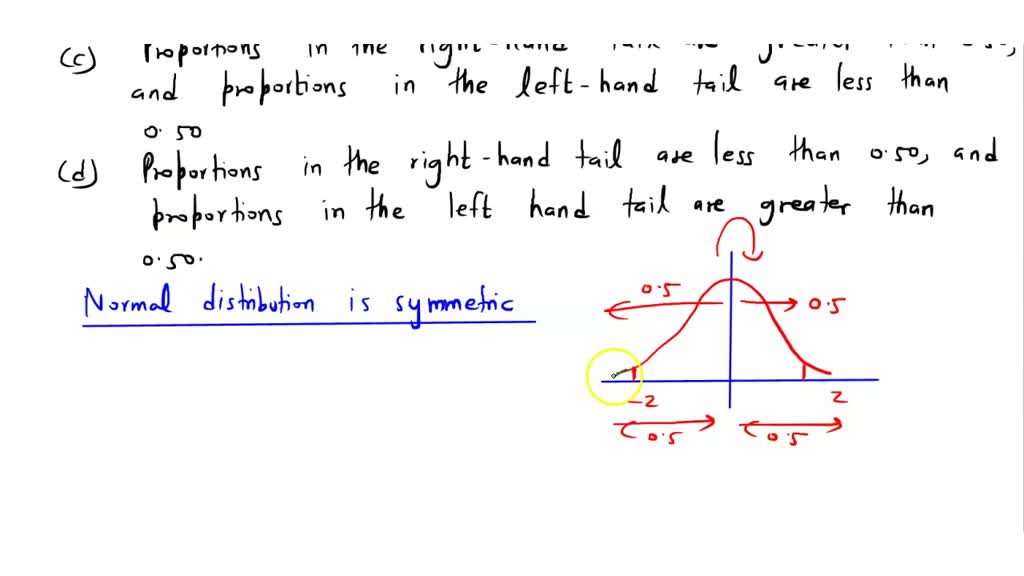 (c) Proportions in the right-hand tail are greater than 0.50,
and proportions in the left-hand tail are less than
0.50
(d) Proportions in the right-hand tail are less than 0.50, and
proportions in the left hand tail are greater than
0.50.
Normal distribution is symmetric
0.5
0.5
-2
2
0.5
0.5